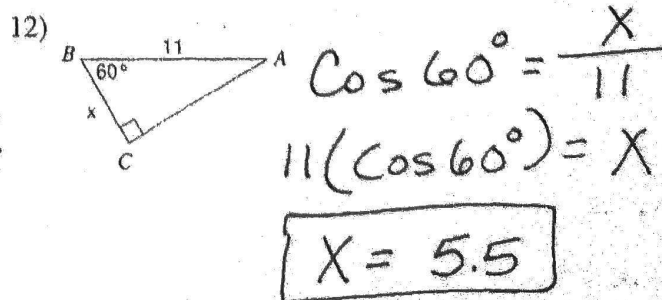 12)
B 11 A
60°
x
C
Cos 60° = X
11
11(Cos60°) = X
X = 5.5